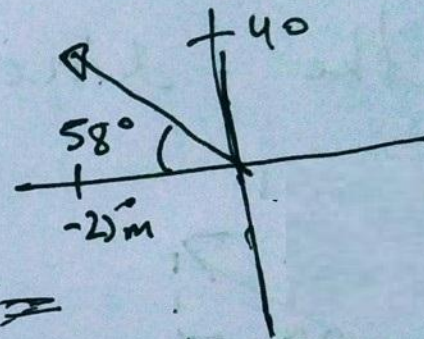 40
58°
-25m